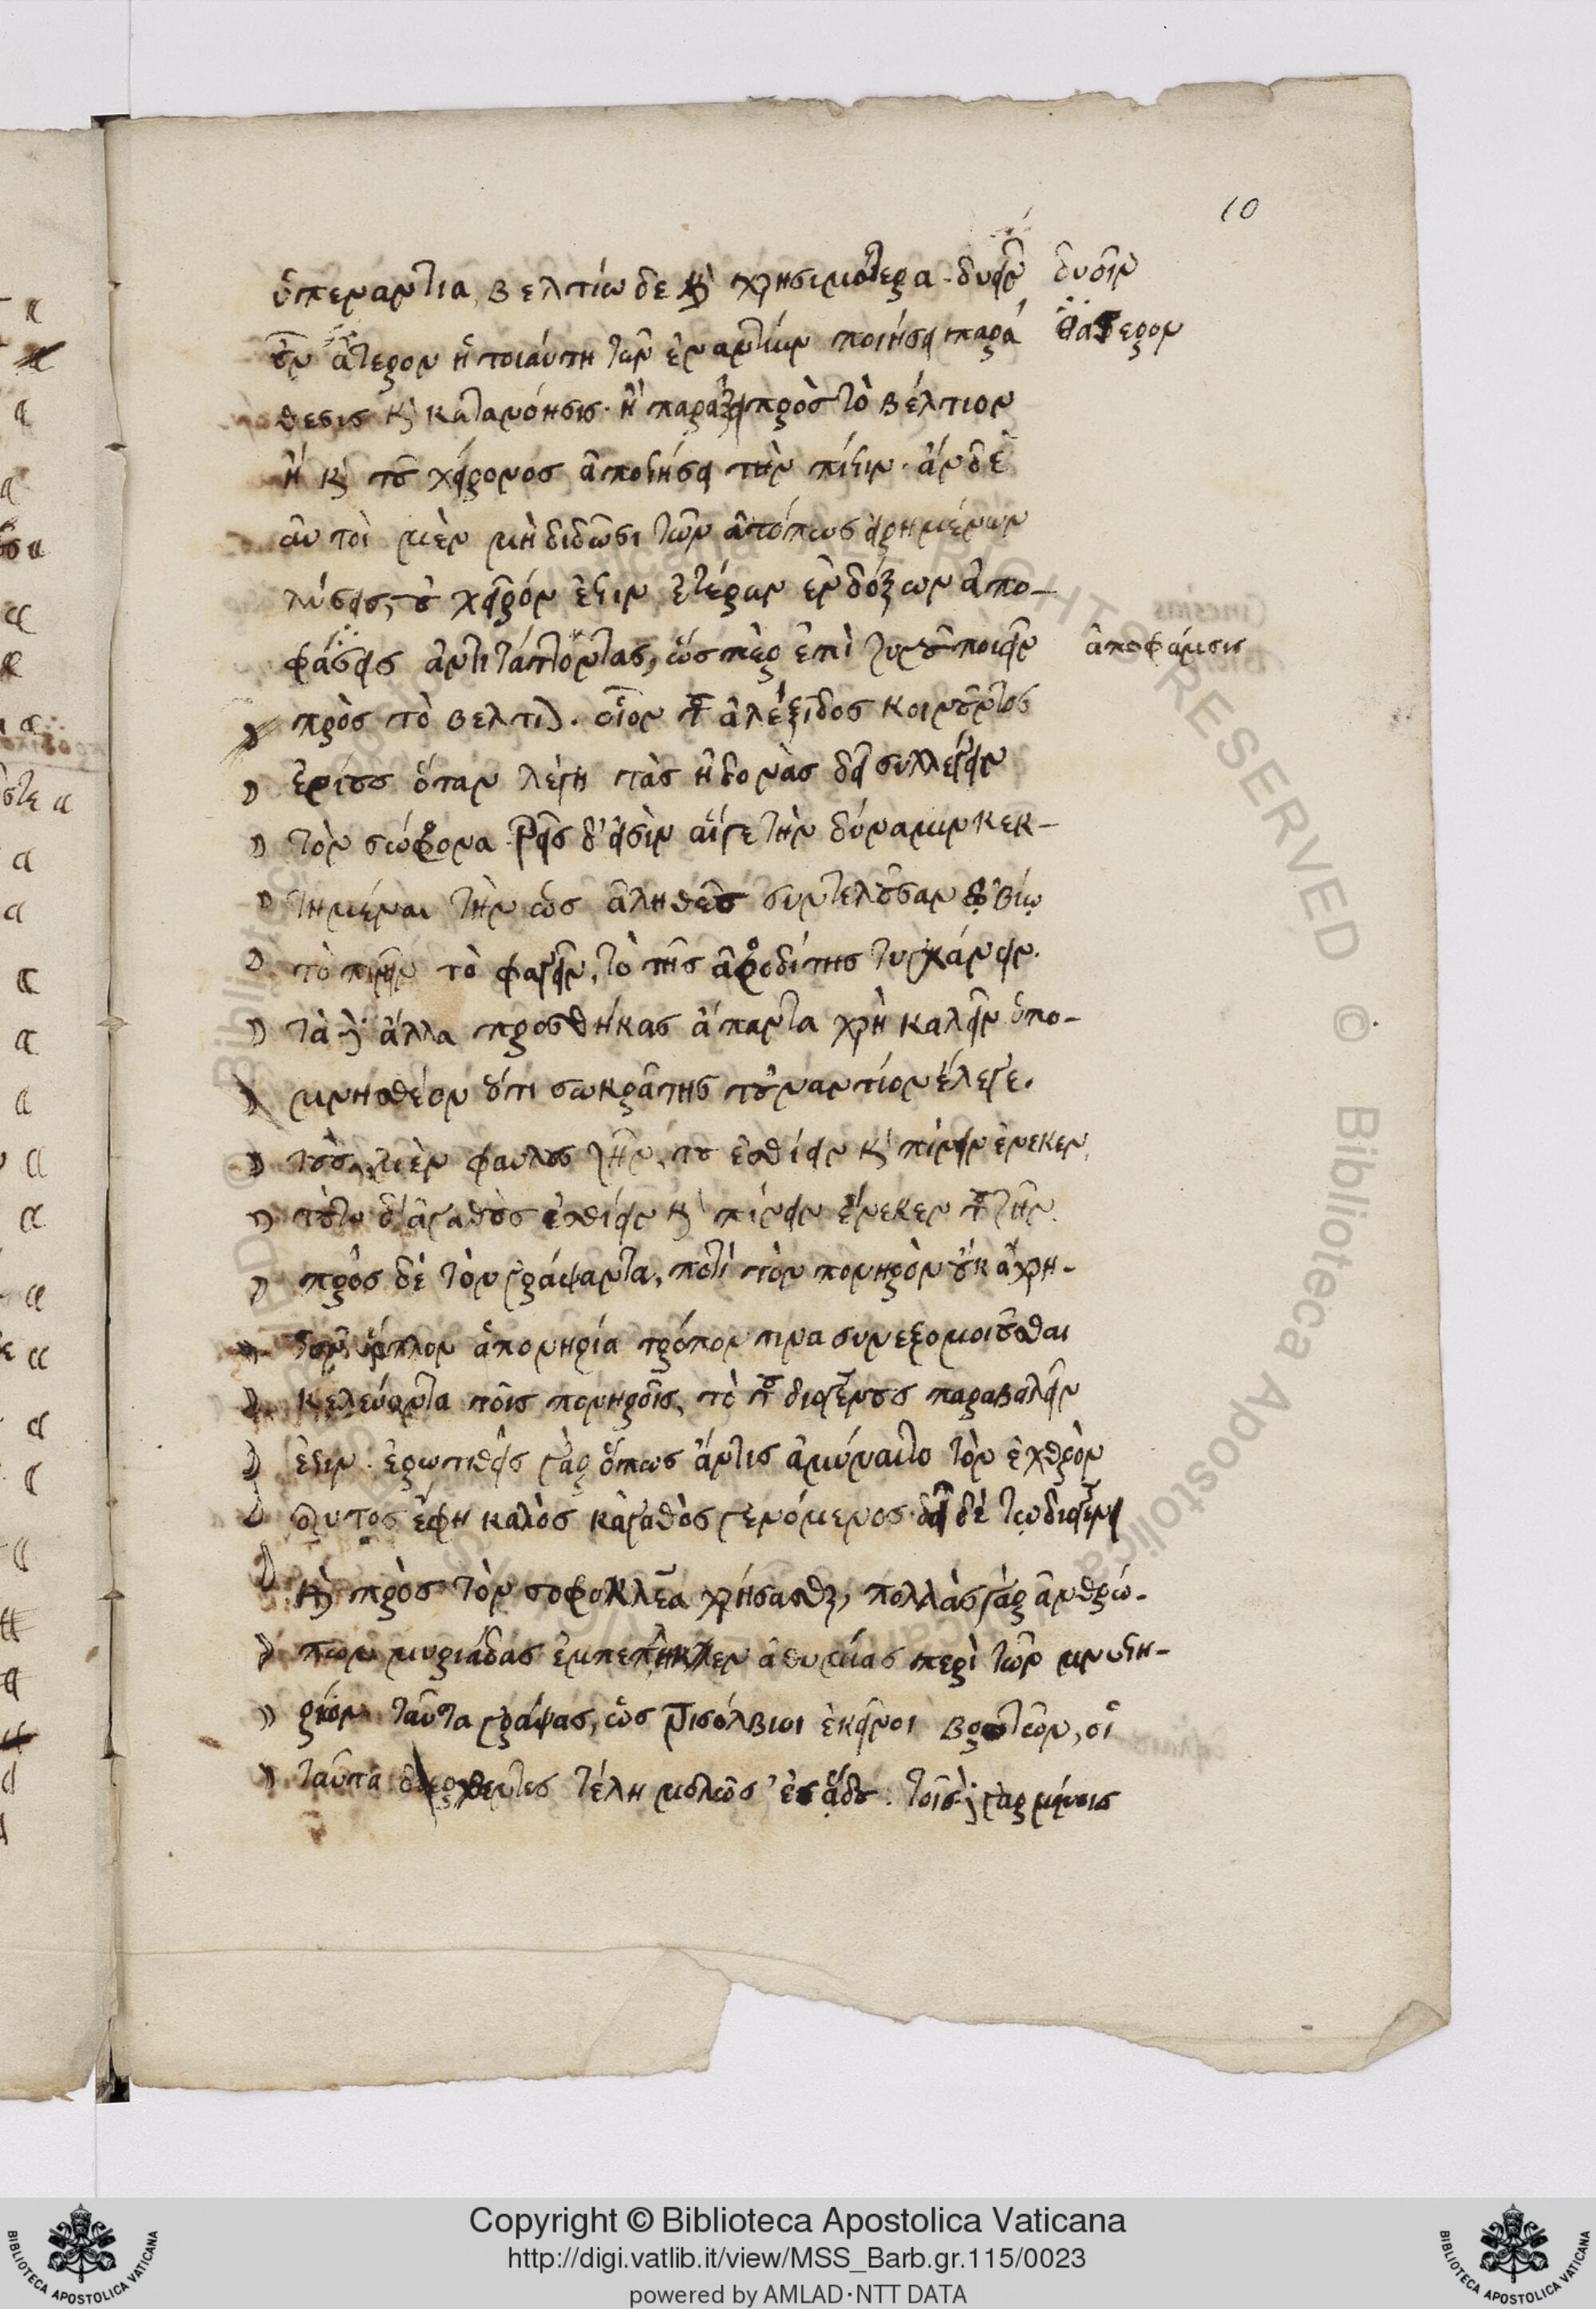 10
ὑπεναντία, βελτίω δε καὶ χρησιμότερα. δυεῖν δυσῖν
οὖν ἅτερον ἢ τοιαύτη τῶν ἐναντίων ποιήσει παρά θάτερον
θεσις καὶ κατανόησις. ἢ παράξει πρὸς τὸ βέλτιον
ἢ καὶ τοῦ χείρονος ἀποστήσει τὴν πίστιν. ἂν δὲ
αὐτοὶ μὲν μὴ διδῶσι τῶν ἀτόπως εἰρημένων
λύσεις, οὐ χεῖρόν ἐστιν ἑτέρων ἐνδόξων ἀπο-
φάσεις ἀντιτάττοντας, ὥσπερ ἐπὶ ζυγοῦ ποιεῖν ἀποφάνσεις
πρὸς τὸ βελτι. οἷον τοῦ ἀλέξιδος κοινοῦντος
ἐνίους ὅταν λέγη τὰς ἡδονὰς δεῖ συλλέγειν
τὸν σώφρονα. τρεῖς δ' εἰσὶν αἵ γε τὴν δύναμιν κεκ-
τημέναι τὴν ὡς ἀληθῶς συντελοῦσαν τῷ βίῳ
τὸ πιεῖν τὸ φαγεῖν, τὸ τῆς ἀφροδίτης τυγχάνειν.
τὰ δ' ἄλλα προσθήκας ἅπαντα χρὴ καλεῖν ὑπο-
μνηστέον ὅτι σωκράτης τοὐναντίον ἔλεγε.
τοὺς μὲν φαύλους ζῆν τοῦ ἐσθίειν καὶ πίνειν ἕνεκεν,
τοὺς δ' ἀγαθοὺς ἐσθίειν καὶ πίνειν ἕνεκεν τοῦ ζῆν.
πρὸς δὲ τὸν γράψαντα, ποτὶ τὸν πονηρὸν οὐκ ἄχρη-
στον ὅπλον ἁ πονηρία τρόπον τινα συνεξομοιοῦσθαι
κελεύοντα τοῖς πονηροῖς, τὸ τοῦ διογένους παραβαλεῖν
ἐστιν. ἐρωτηθεὶς γὰρ ὅπως ἄν τις ἀμύναιτο τὸν ἐχθρὸν
αυτος ἔφη καλὸς κἀγαθὸς γενόμενος. δεῖ δὲ τῳ διογένει
καὶ πρὸς τὸν σοφοκλέα χρήσασθαι, πολλὰς γὰρ ἀνθρώ-
πων μυριάδας ἐμπέπληκεν ἀθυμίας περὶ τῶν μυστη-
ρίων ταῦτα γράψας, ὡς τρισόλβιοι ἐκεῖνοι βροτῶν, οἳ
ταῦτα δερχθέντες τέλη μολῶσ' ἐς ᾅδου. τοῖσδε γὰρ μόνοις
Copyright © Biblioteca Apostolica Vaticana
http://digi.vatlib.it/view/MSS_Barb.gr.115/0023
powered by AMLAD·NTT DATA